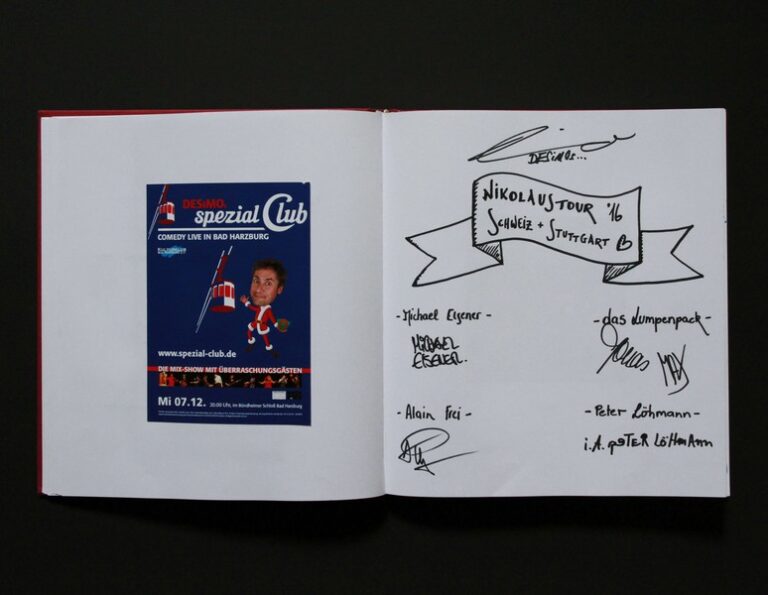 DESiMOs
spezial Club
COMEDY LIVE IN BAD HARZBURG
www.spezial-club.de
DIE MIX-SHOW MIT ÜBERRASCHUNGSGÄSTEN
Mi 07.12. 20:00 Uhr, im Bündheimer Schloß Bad Harzburg
DESiMOs...
NiKOLAUSTOUR '16
SCHWEiZ + STUTTGART
- Michael Elsener -
MICHAEL
ELSENER.
- das Lumpenpack -
Jonas MAX
- Alain Frei -
- Peter Löhmann -
i.A. PETER LÖHMANN